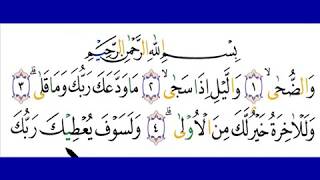 بِسْمِ اللّٰهِ الرَّحْمٰنِ الرَّحِيْمِ
وَالضُّحٰىۙ ١ وَالَّيْلِ اِذَا سَجٰىۙ ٢ مَاوَدَّعَكَ رَبُّكَ وَمَا قَلٰىۗ ٣
وَلَلْاٰخِرَةُ خَيْرٌ لَّكَ مِنَ الْاُوْلٰىۗ ٤ وَلَسَوْفَ يُعْطِيْكَ رَبُّكَ